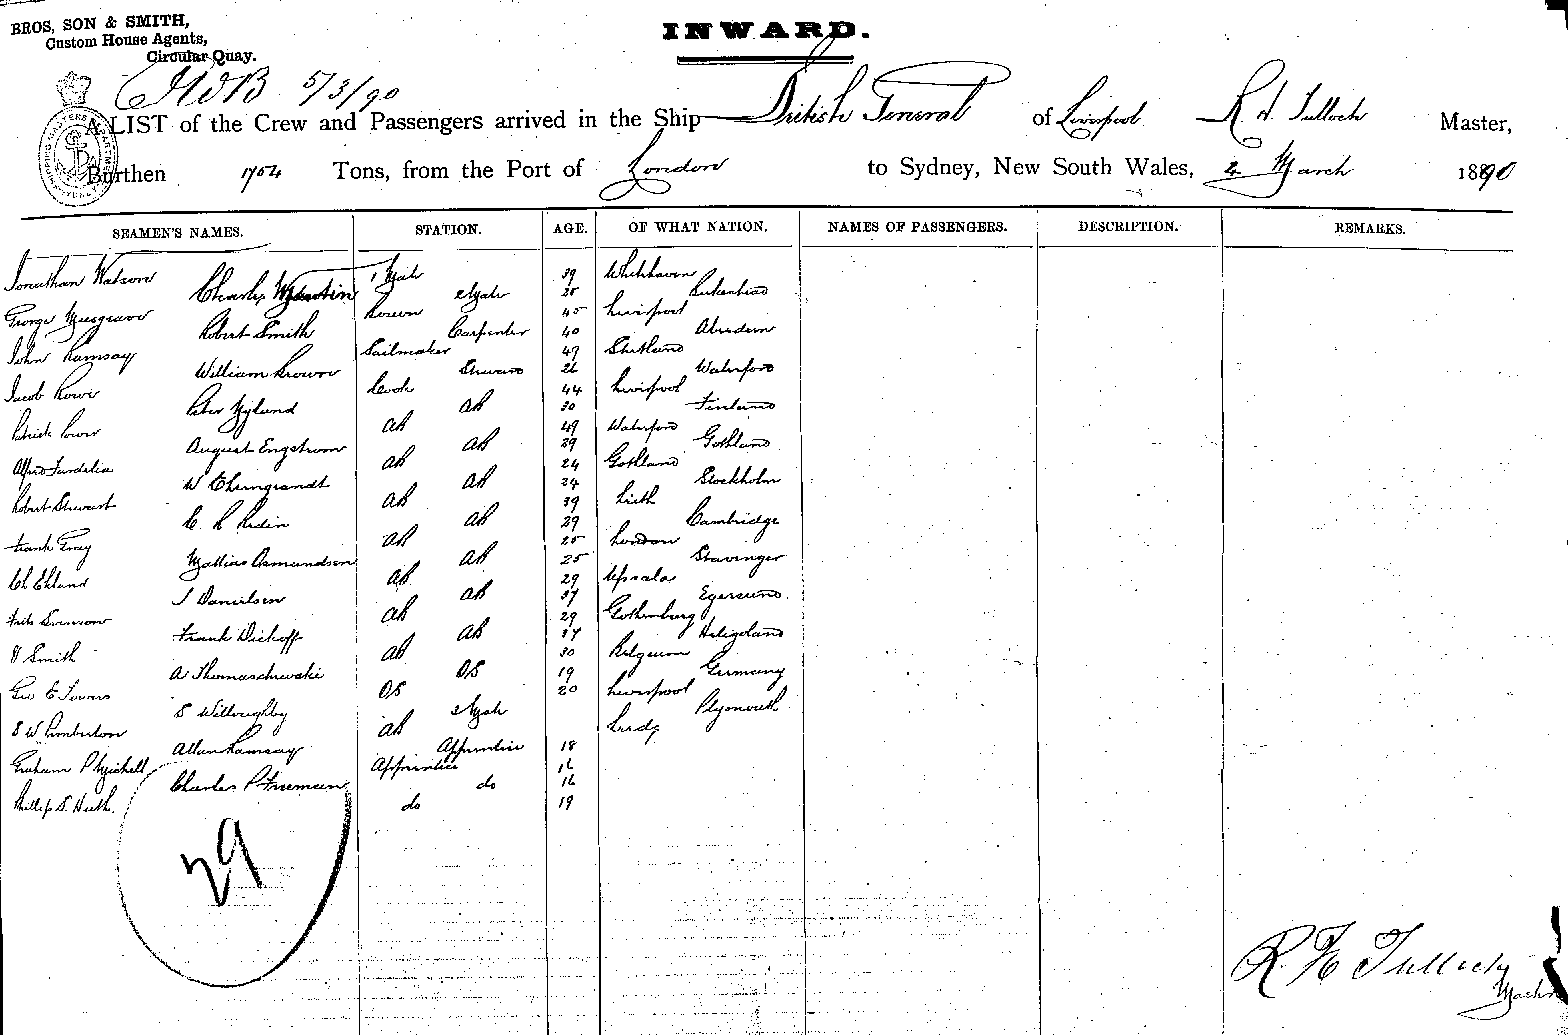 BROS, SON & SMITH,
Custom House Agents,
Circular Quay.
INWARD.
5/3/90
A LIST of the Crew and Passengers arrived in the Ship British General of Liverpool R H Tulloch Master,
Burthen 1754 Tons, from the Port of London to Sydney, New South Wales, 4 March 1890
SEAMEN'S NAMES. STATION. AGE. OF WHAT NATION. NAMES OF PASSENGERS. DESCRIPTION. REMARKS.
Jonathan Watson 1 Mate 39 Whitehaven
Charles 2 Mate 28 Birkenhead
George Musgrave Bosun 45 Liverpool
Robert Smith Carpenter 40 Aberdeen
John Ramsay Sailmaker 49 Shetland
William Brown Steward 26 Waterford
Jacob Rowe Cook 44 Liverpool
Peter Nylund AB 30 Finland
Patrick Power AB 49 Waterford
August Engstrom AB 29 Gothland
Alfred AB 24 Gothland
W AB 24 Stockholm
Robert Stewart AB 39 Leith
C R AB 29 Cambridge
Frank Gray AB 25 London
Mattias Osmundsen AB 25 Stavinger
Ch Eklund AB 29 Upsala
J Danielsen AB 37 Egersund
Fritz Svenson AB 29 Gothenburg
Frank Dickoff AB 37 Heligoland
H Smith AB 30 Belgium
A Thomaschewskie OS 19 Germany
Geo E Towers OS 20 Liverpool
S Willoughby 3 Mate Plymouth
S W Pemberton AB Leeds
Allan Ramsay Apprentice 18
Graham P Michell Apprentice 16
Charles P Freeman do 16
Phillip S. Heath. do 19
29
R. H. Tulloch
Master